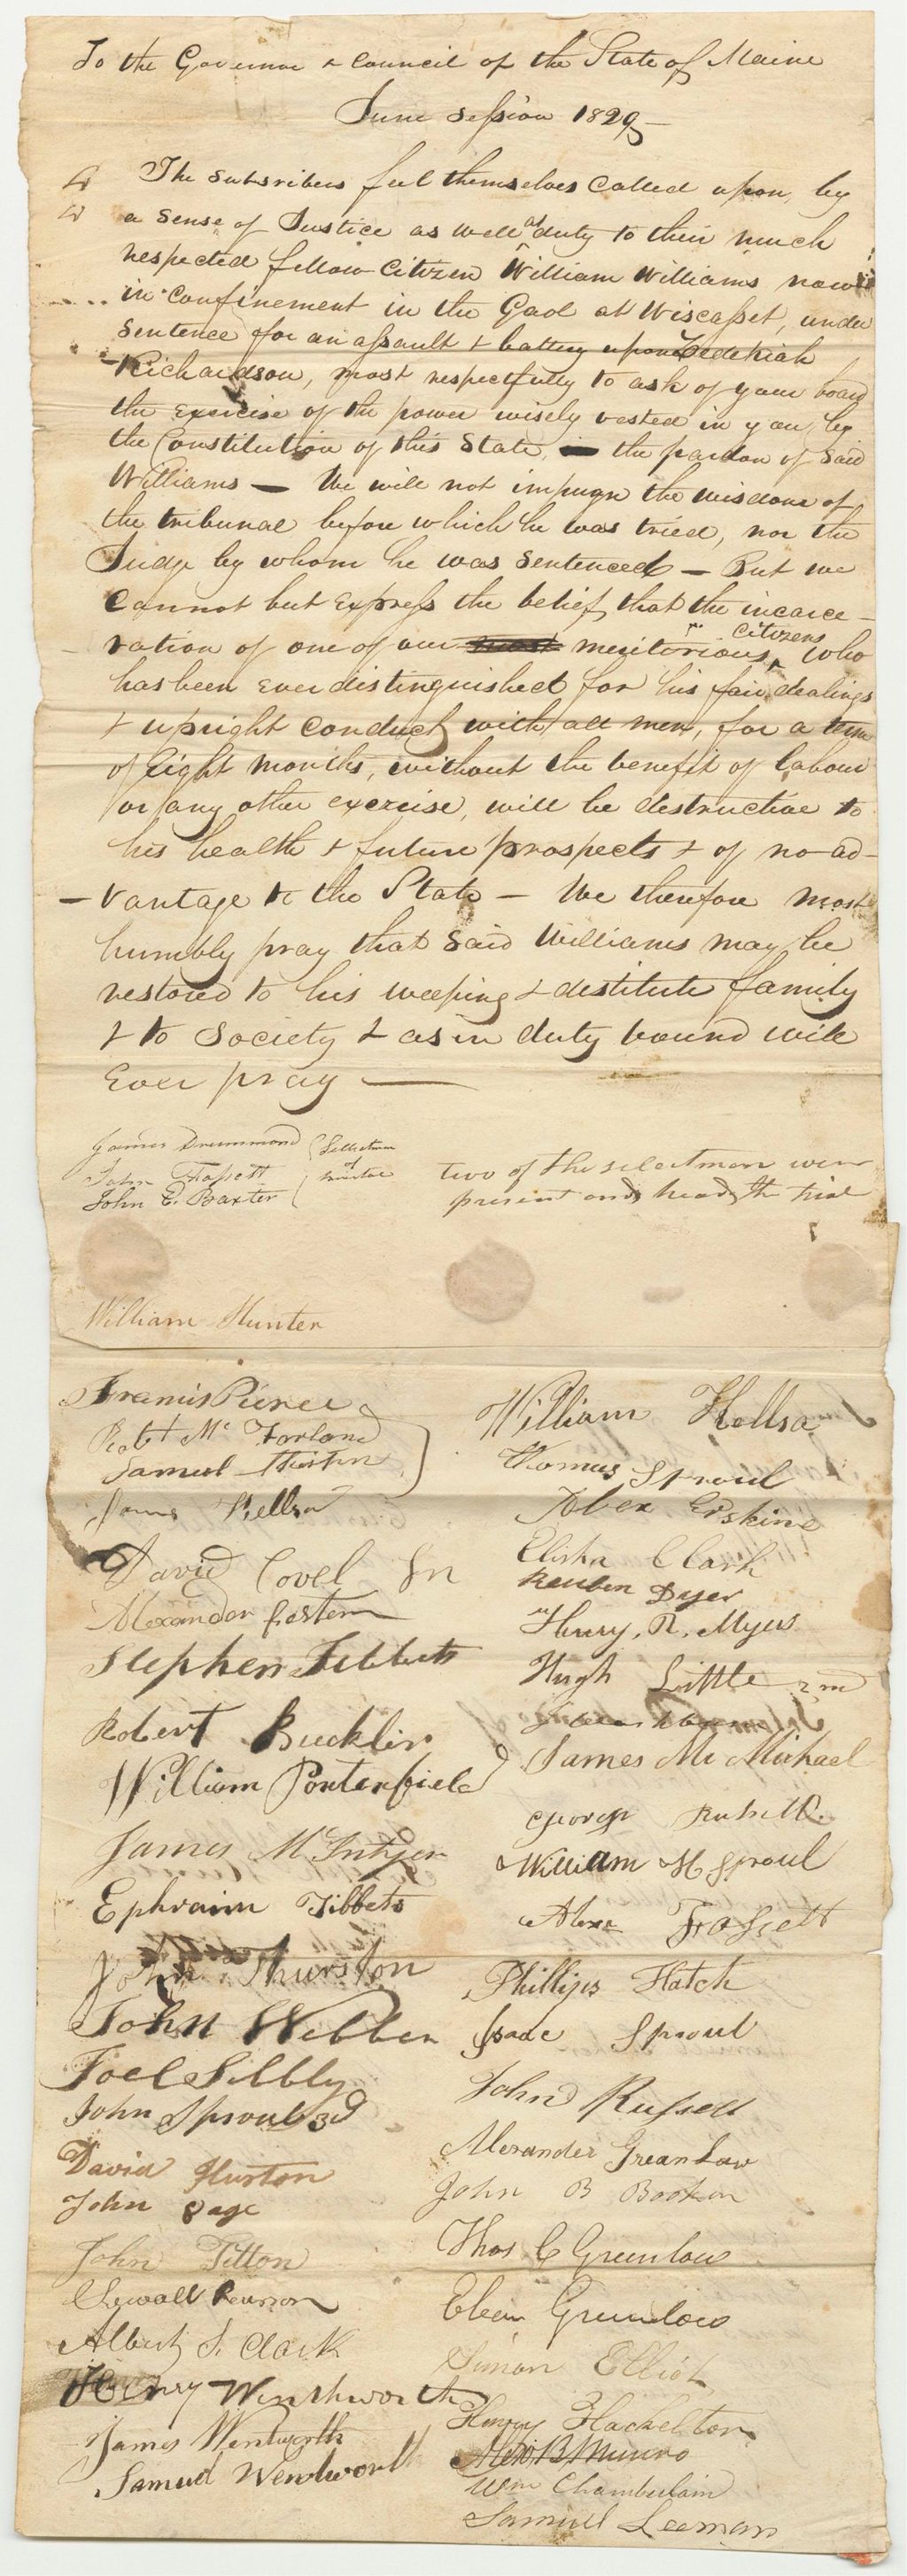 To the Governor & Council of the State of Maine
June Session 1829
The subsribers feel themselves called upon, by
a sense of Justice as well as duty to their much
respected fellow Citizen William Williams now
in confinement in the Gaol at Wiscasset, under
sentence for an assault & battery upon Zedekiah
Richardson, most respectfully to ask of your board
the exercise of the power wisely vested in you by
the Constitution of this State, — the pardon of said
Williams — We will not impugn the wisdom of
the tribunal before which he was tried, nor the
Judge by whom he was sentenced — But we
cannot but express the belief, that the incarce-
ration of one of our meritorious citizens who
has been ever distinguished for his fair dealings
& upright conduct with all men, for a term
of Eight months, without the benefit of labour
or any other exercise, will be destructive to
his health & future prospects & of no ad-
-vantage to the State — We therefore most
humbly pray that said Williams may be
restored to his weeping & destitute family
& to society & as in duty bound will
ever pray —
James Drummond
John Fassett
John E. Baxter
Selectmen
of
Bristol
two of the selectmen were
present and heard the trial
William Hunter
Francis Pierce
Robt Mc Farland
Samuel Thurston
James Kellsa
David Covel Jn
Alexander
Stephen Tibbets
Robert Bucklin
William Porterfield
James McIntyer
Ephraim Tibbets
John Thurston
John Webber
Joel Sibbly
John Sproul 3d
David Huston
John Page
John Tilton
Sewall Pearson
Albert S. Clark
Henry Winthworth
James Wentworth
Samuel Wentworth
William Kellsa
Thomas Sproul
Erskine
Elisha Clark
Reuben Dyer
Henry. R. Myers
Hugh Little 2nd
James Mc Michael
George Russell
William H Sproul
Alexr Fassett
Phillips Hatch
Isaac Sproul
John Russell
Alexander GreanLaw
John B Booker
Thos C Greenlow
Eben Greenlow
Simon Elliot
Henry Hackelton
Alexr B Munro
Wm Chamberlain
Samuel Leeman